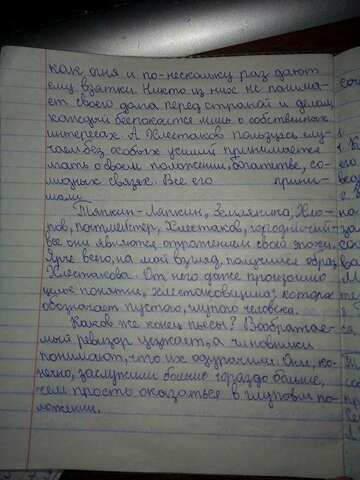 как огня и по-нескольку раз дают
ему взятки. Никто из них не понима-
ет своего долга перед страной и делом,
каждый беспокоится лишь о собственных
интересах. А Хлестаков пользуясь слу-
чаем без особых усилий принимается
лгать о своём положении, богатстве, со-
лидных связях. Все его прини-
мали.
Тяпкин-Ляпкин, Земляника, Хло-
пов, почтмейстер, Хлестаков, городничий -
все они являются отражением своей эпохи.
Ярче всего, на мой взгляд, получился образ
Хлестакова. От него даже произошло
целое понятие "хлестаковщина", которое
обозначает пустого, глупого человека.
Каков же конец пьесы? Воображае-
мый ревизор уезжает, а чиновники
понимают, что их одурачили. Они, ко-
нечно, заслужили больше гораздо больше,
чем просто оказаться в глупом по-
ложении.